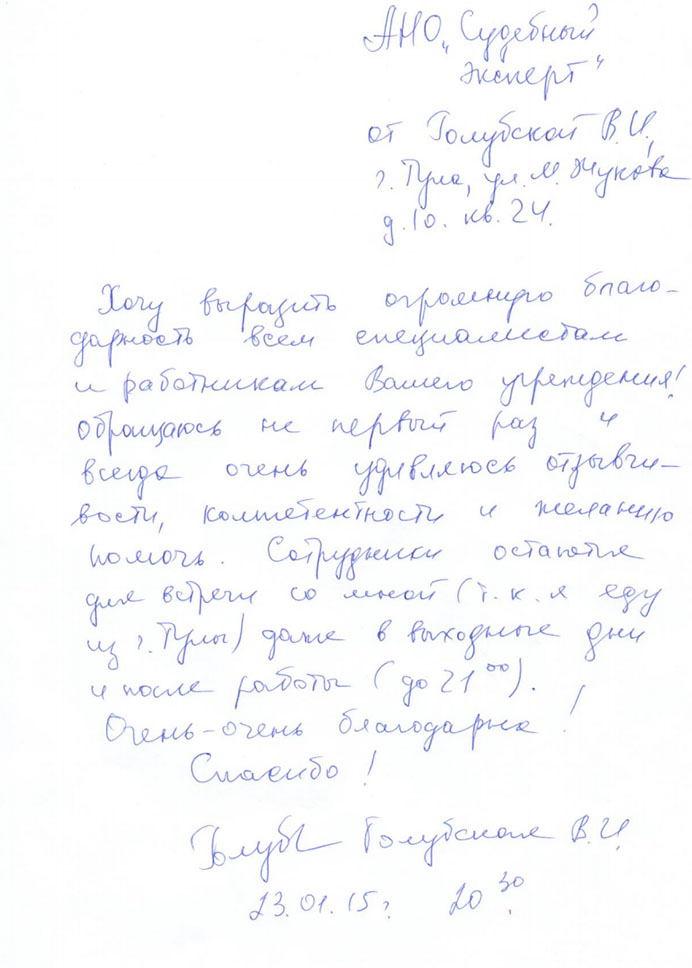 АНО „Судебный
эксперт"
от Голубской В.И,
г. Тула, ул. М. Жукова
д. 10. кв. 24.
Хочу выразить огромную благо-
дарность всем специалистам
и работникам Вашего учреждения!
Обращаюсь не первый раз и
всегда очень удивляюсь отзывчи-
вости, компетентности и желанию
помочь. Сотрудники остаются
для встречи со мной (т.к. я еду
из г. Тулы) даже в выходные дни
и после работы (до 21⁰⁰).
Очень-очень благодарна!
Спасибо!
Голуб Голубская В.И.
23.01.15г. 20³⁰.